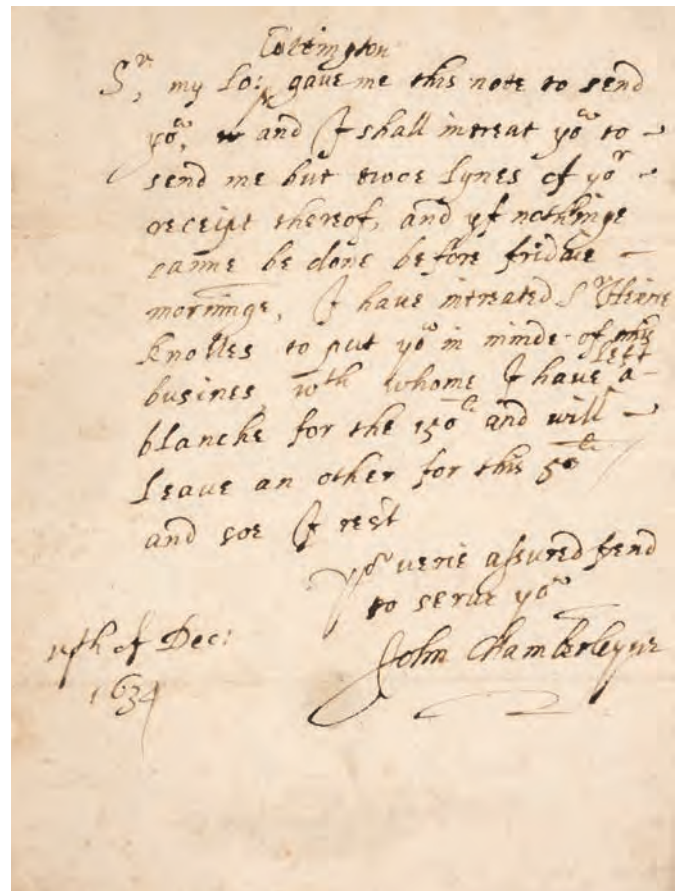 Cottington
Sr, my Lo: gave me this note to send
you, and I shall intreat you to
send me but twoe lynes of yor
receipt thereof, and yf nothinge
canne be done before fridaie
morninge, I have intreated Sr Henrie
Knolles to put you in minde of this
busines wth whome I have left a
blanche for the 150li and will
leave an other for this 50li
and soe I rest
yor verie assured frend
to serve you
John Chamberleyne
of Dec:
1634